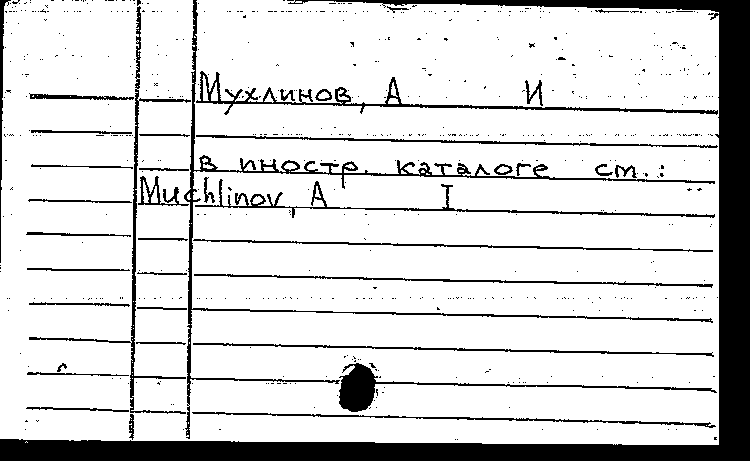 Мухлинов, А И
в иностр. каталоге ст.:
Muchlinov, A I